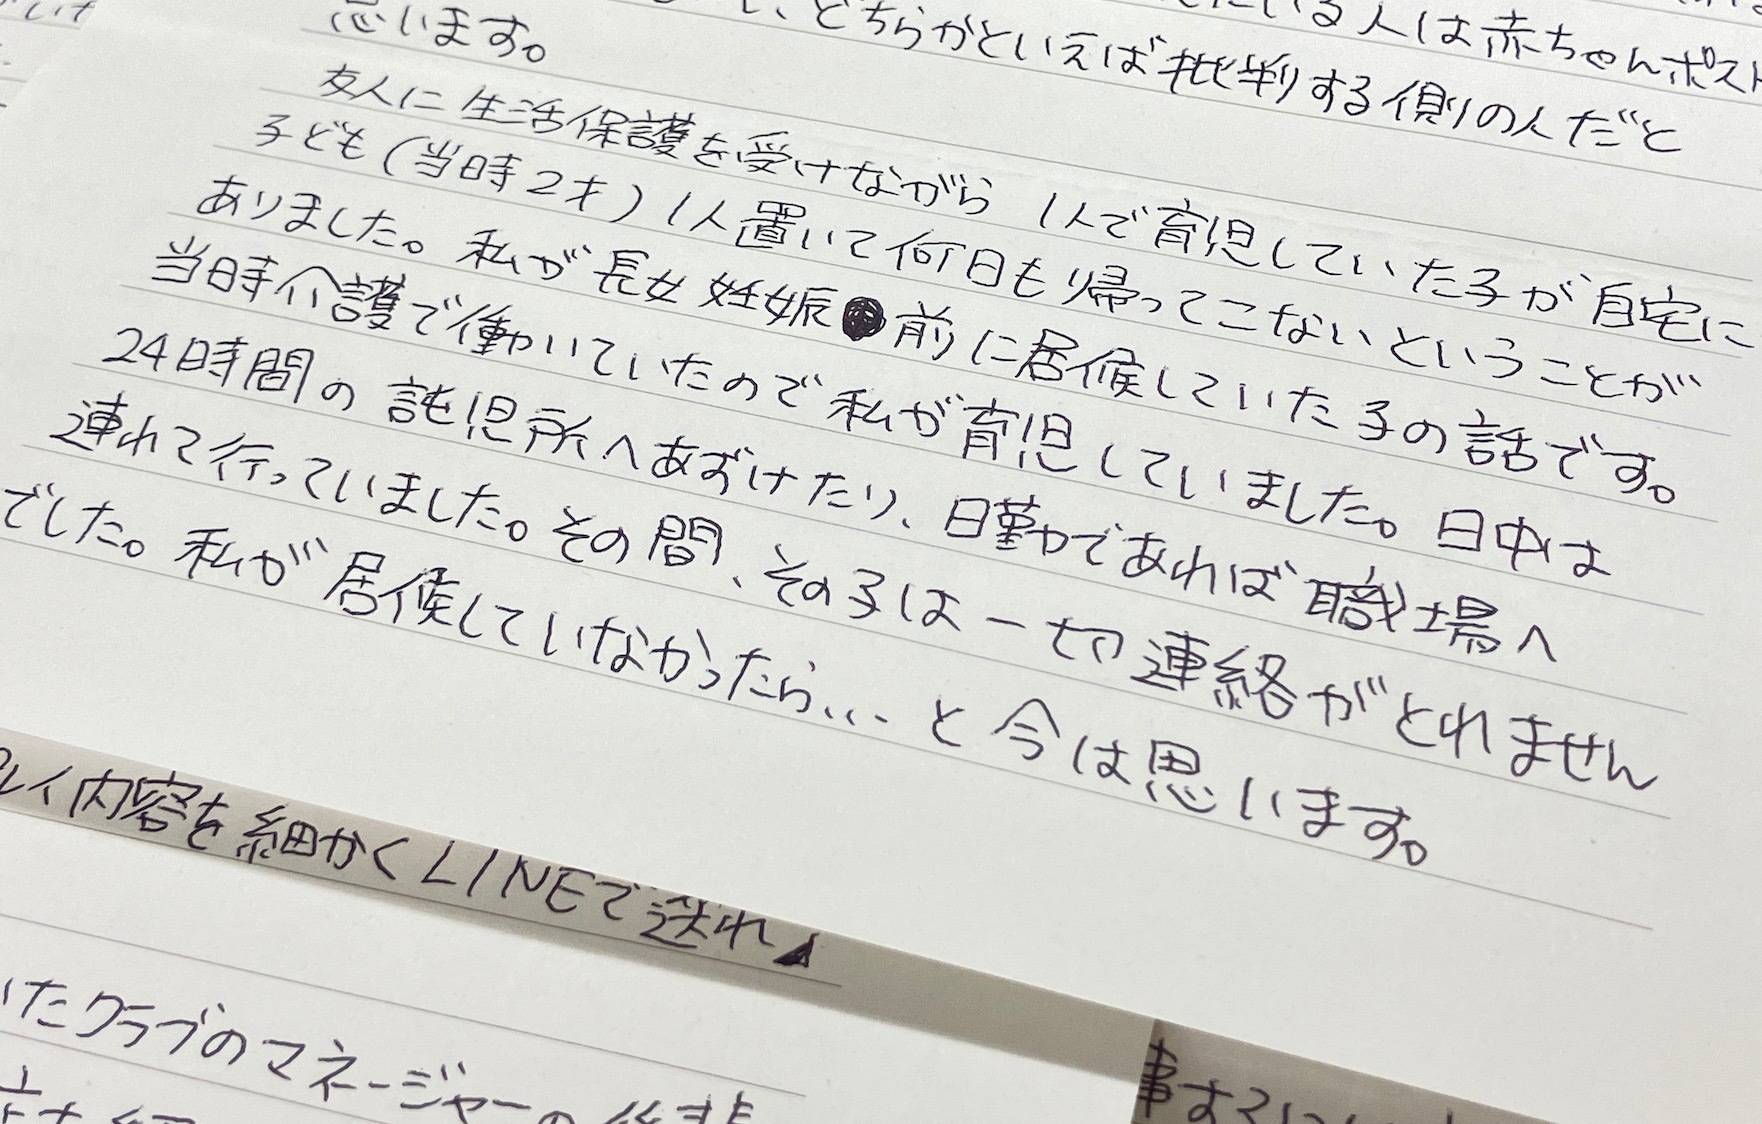 いる人は赤ちゃんポスト
、どちらかといえば批判する側の人だと
思います。
友人に生活保護を受けながら 1人で育児していた子が自宅に
子ども(当時2才)1人置いて何日も帰ってこないということが
ありました。私が長女妊娠前に居候していた子の話です。
当時介護で働いていたので私が育児していました。日中は
24時間の託児所へあずけたり、日勤であれば職場へ
連れて行っていました。その間、その子は一切連絡がとれません
でした。私が居候していなかったら... と今は思います。
レイ内容を細かくLINEで送れ
いたクラブのマネージャーの後輩
事する